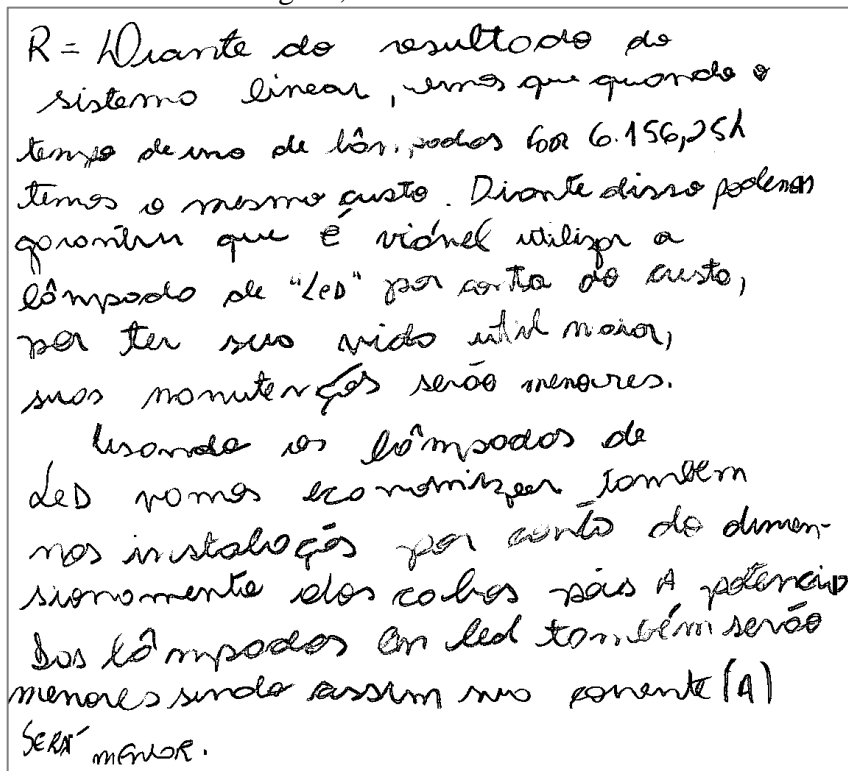 R = Diante do resultado do
sistema linear, vemos que quando o
tempo de uso de lâmpadas for 6.156,25h
temos o mesmo custo. Diante disso podemos
garantir que é viável utilizar a
lâmpada de "LeD" por conta do custo,
por ter sua vida util maior,
suas manutenções serão menores.
Usando as lâmpadas de
LeD vamos economizar também
nas instalações por conta do dimen-
sionamento dos cabos pois A potencia
Das lâmpadas em led também serão
menores sendo assim sua corrente (A)
SERÁ menOR.